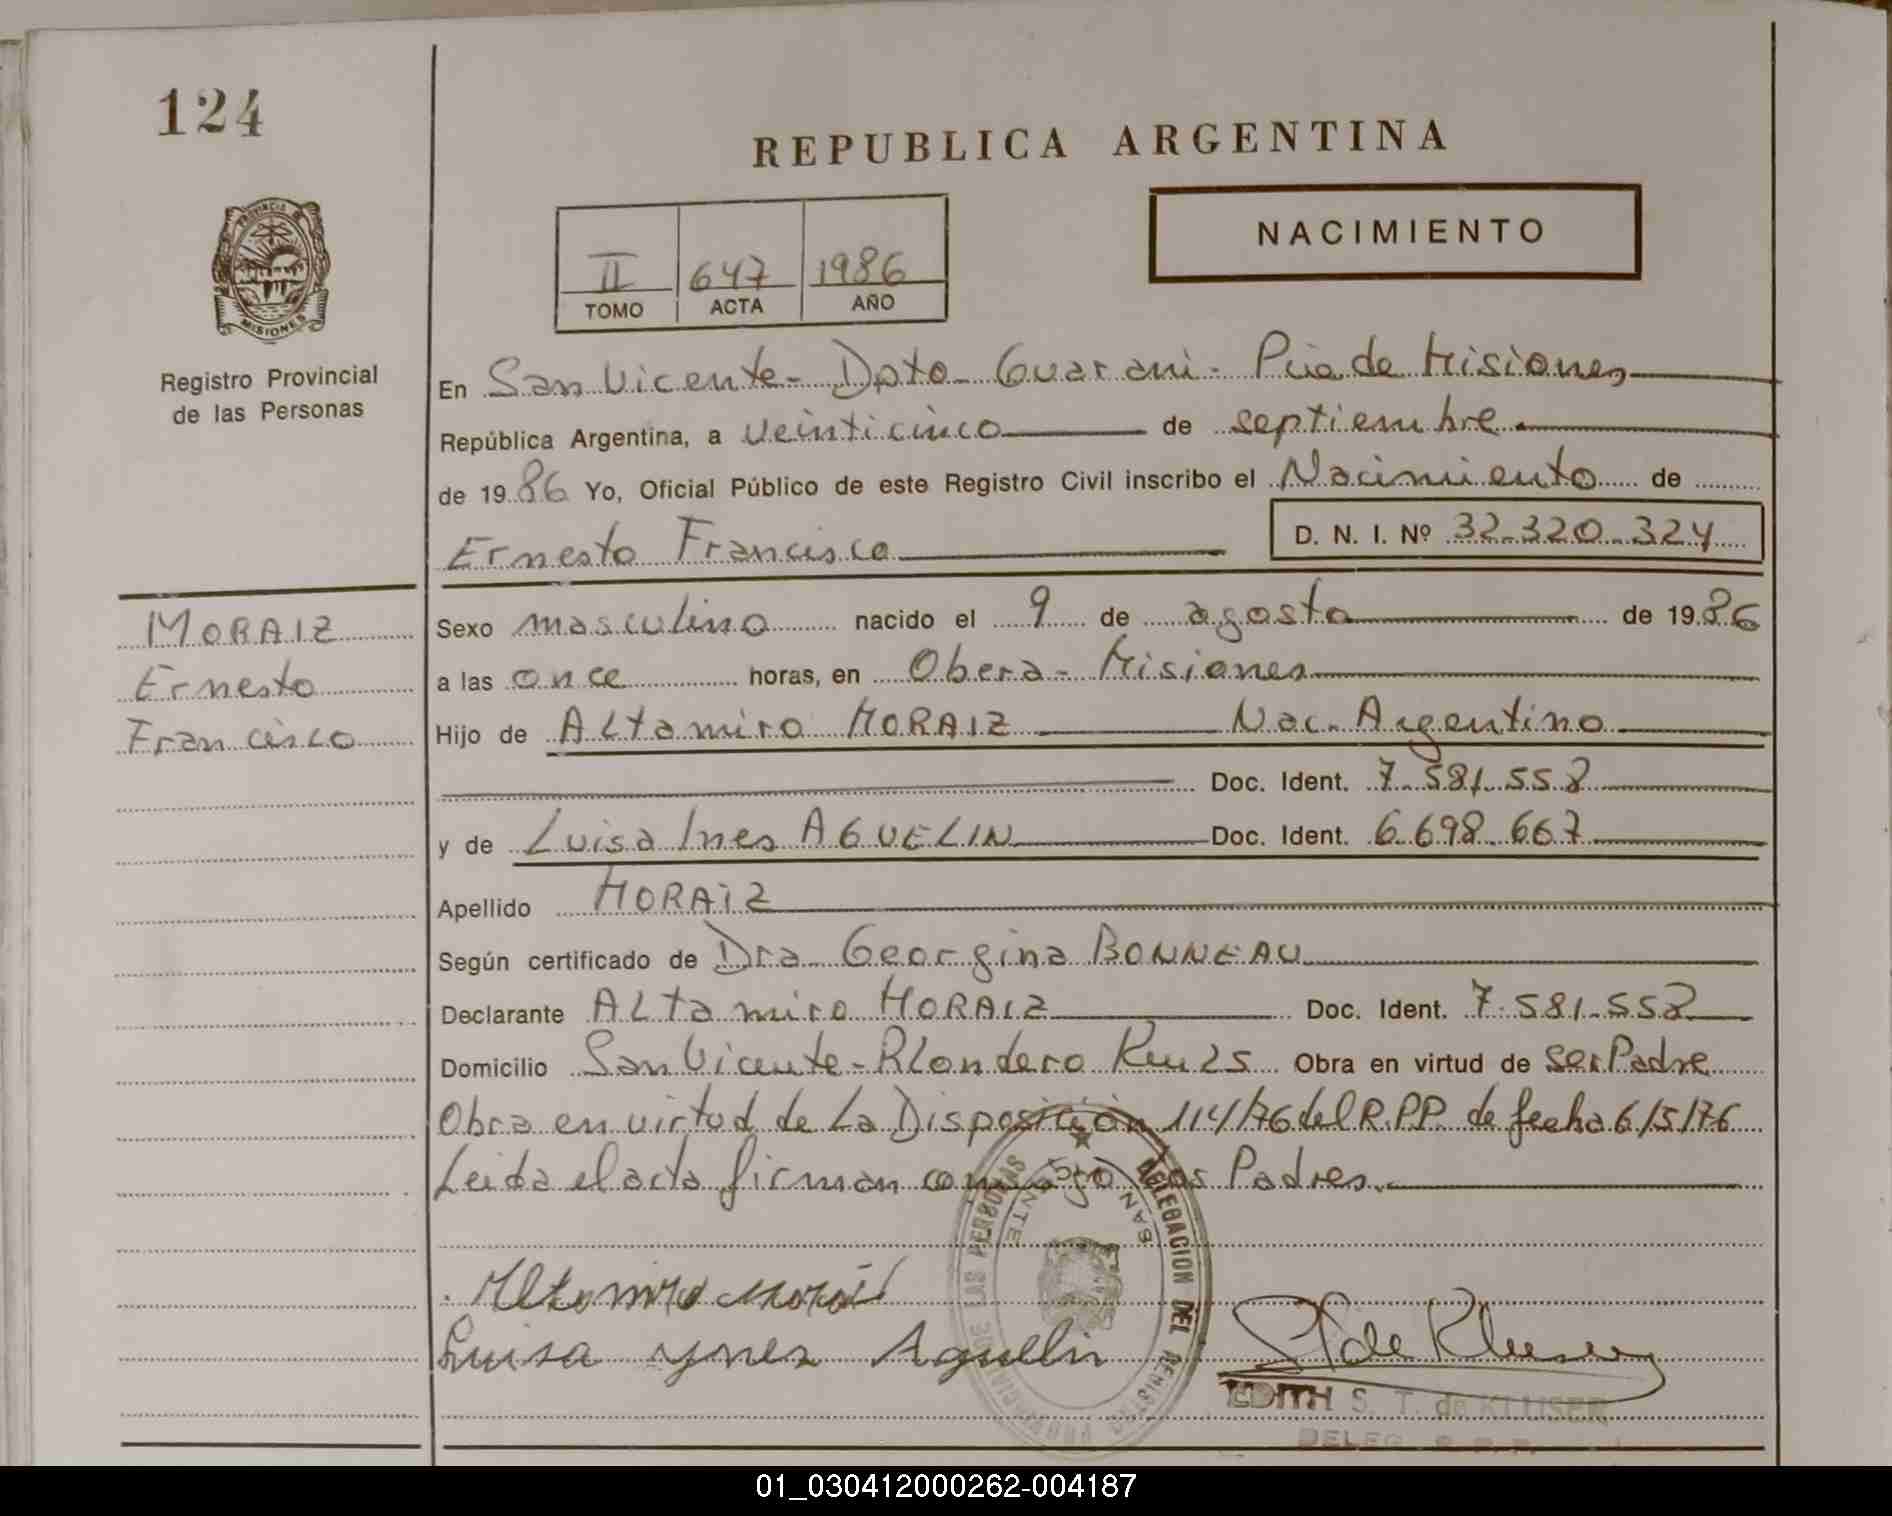 124
REPUBLICA ARGENTINA
PROVINCIA D
MISIONES
Registro Provincial
de las Personas
II 647 1986
TOMO ACTA AÑO
NACIMIENTO
En San Vicente - Dpto - Guarani - Pcia de Misiones
República Argentina, a veinticinco de septiembre
de 1986 Yo, Oficial Público de este Registro Civil inscribo el Nacimiento de
Ernesto Francisco D. N. I. Nº 32.320.324
MORAIZ
Ernesto
Francisco
Sexo masculino nacido el 9 de agosto de 1986
a las once horas, en Obera - Misiones
Hijo de ALtamiro MORAIZ Nac. Argentino
Doc. Ident. 7.581.558
y de Luisa Ines AGUELIN Doc. Ident. 6.698.667
Apellido MORAIZ
Según certificado de Dra. Georgina BONNEAU
Declarante ALtamiro MORAIZ Doc. Ident. 7.581.558
Domicilio San Vicente - Rlondero Obra en virtud de ser Padre
Obra en virtud de La Disposición 114/76 del R.P.P. de fecha 6/5/76
Leida el acta firman conmigo Los Padres.
Altamiro Moraiz
Luisa Ynez Aguelin
DELEGACION DEL REGISTRO PROVINCIAL DE LAS PERSONAS
SAN VICENTE
S T de Kluser
EDITH S. T. de KLUSER
DELEG. R. P. P.
01_030412000262-004187